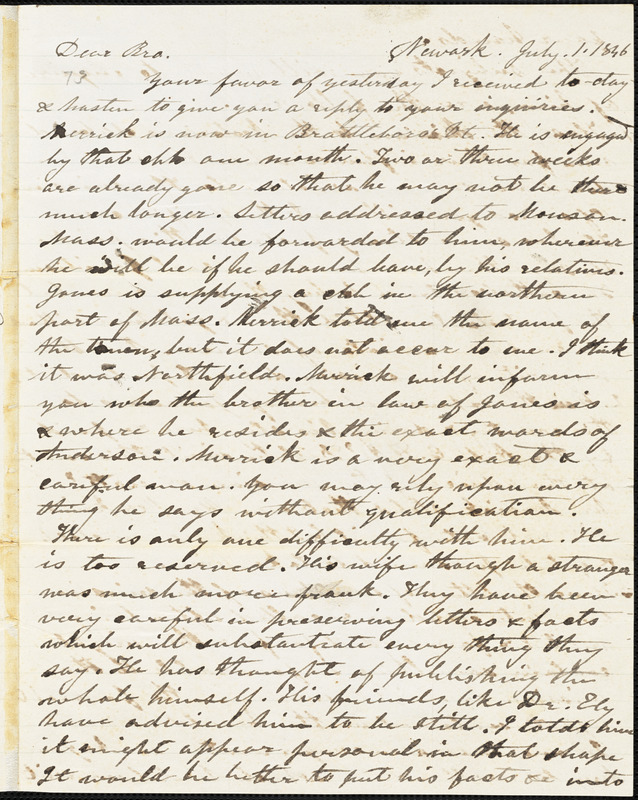 Dear Bro. Newark. July. 1. 1846
73 Your favor of yesterday I received to-day
& hasten to give you a reply to your inquiries.
Merrick is now in Brattleboro Vt. He is engaged
by that chh one month. Two or three weeks
are already gone so that he may not be there
much longer. Letters addressed to Monson.
Mass. would be forwarded to him, wherever
he will be if he should leave, by his relatives.
Jones is supplying a chh in the northern
part of Mass. Merrick told me the name of
the town, but it does not occur to me. I think
it was Northfield. Merrick will inform
you who the brother in law of Jones is
& where he resides & the exact words of
Anderson. Merrick is a very exact &
careful man. You may rely upon every
thing he says without qualification.
There is only one difficulty with him. He
is too reserved. His wife though a stranger
was much more frank. They have been
very careful in preserving letters & facts
which will substantiate every thing they
say. He has thought of publishing the
whole himself. His friends, like Dr. Ely
have advised him to be still. I told him
it might appear personal in that shape
It would be better to put his facts &c into